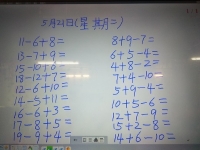 5月29日(星期二)
11-6+8=
13-7+9=
15-10+8=
18-12+7=
12-6+10=
14-5+11=
16-6+3=
17-8+5=
19-9+4=
8+9-7=
6+5-4=
4+8-2=
7+4-10=
5+9-4=
10+5-6=
12+7-9=
15+2-8=
14+6-10=